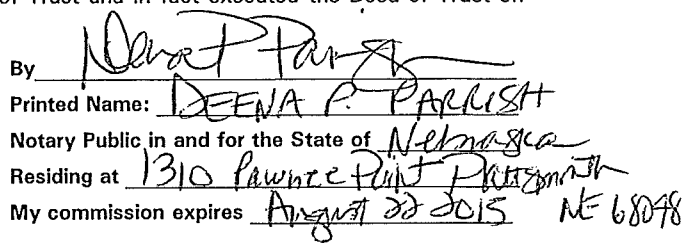 of Trust and in fact executed the Deed of Trust on
By Deena P Parrish
Printed Name: DEENA P. PARRISH
Notary Public in and for the State of Nebraska
Residing at 1310 Pawnee Point Plattsmouth
My commission expires August 22 2015 NE 68048